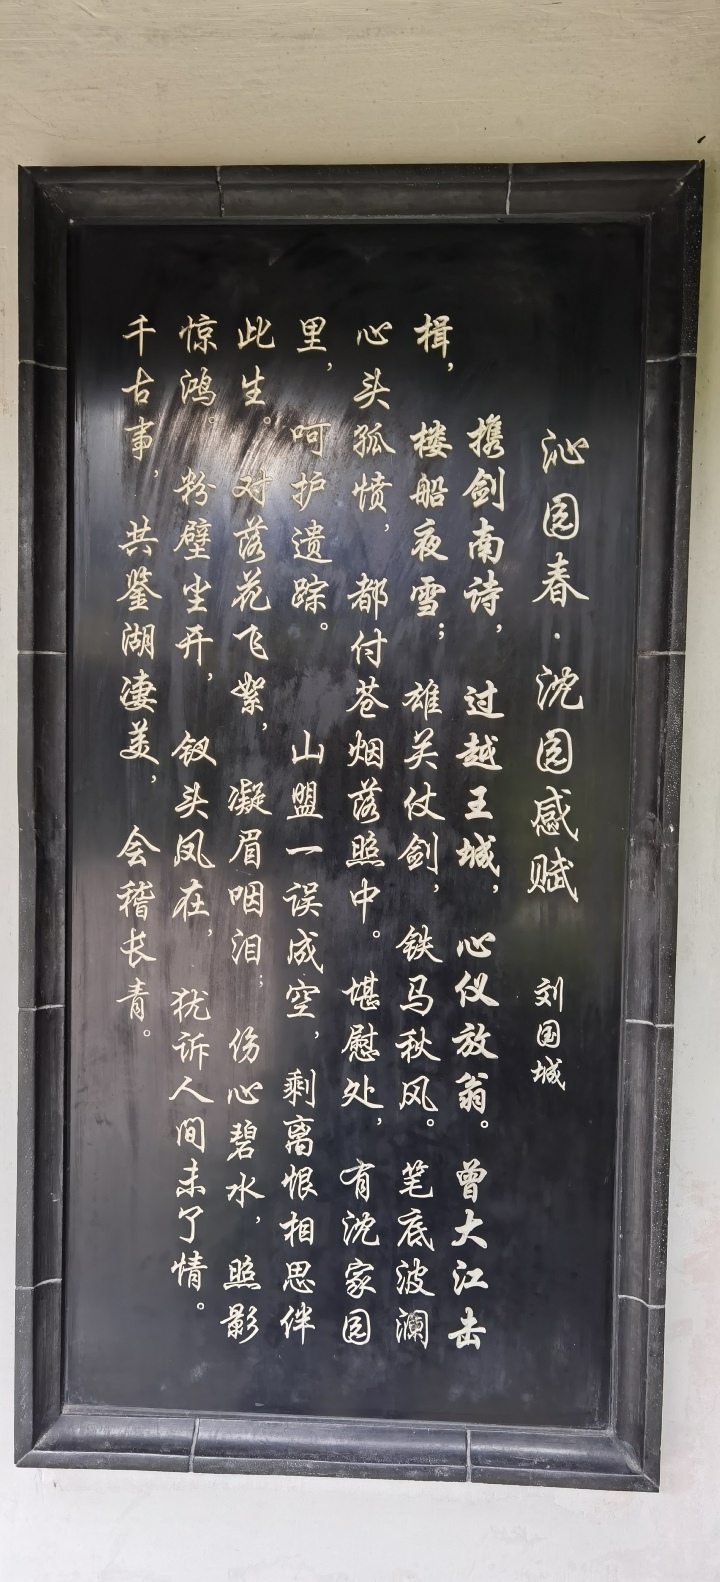 沁园春·沈园感赋 刘国城
携剑南诗，过越王城，心仪放翁。曾大江击
楫，楼船夜雪；雄关仗剑，铁马秋风。笔底波澜
心头孤愤，都付苍烟落照中。堪慰处，有沈家园
里，呵护遗踪。山盟一误成空，剩离恨相思伴
此生。对落花飞絮，凝眉咽泪；伤心碧水，照影
惊鸿。粉壁尘开，钗头凤在，犹诉人间未了情。
千古事，共鉴湖凄美，会稽长青。